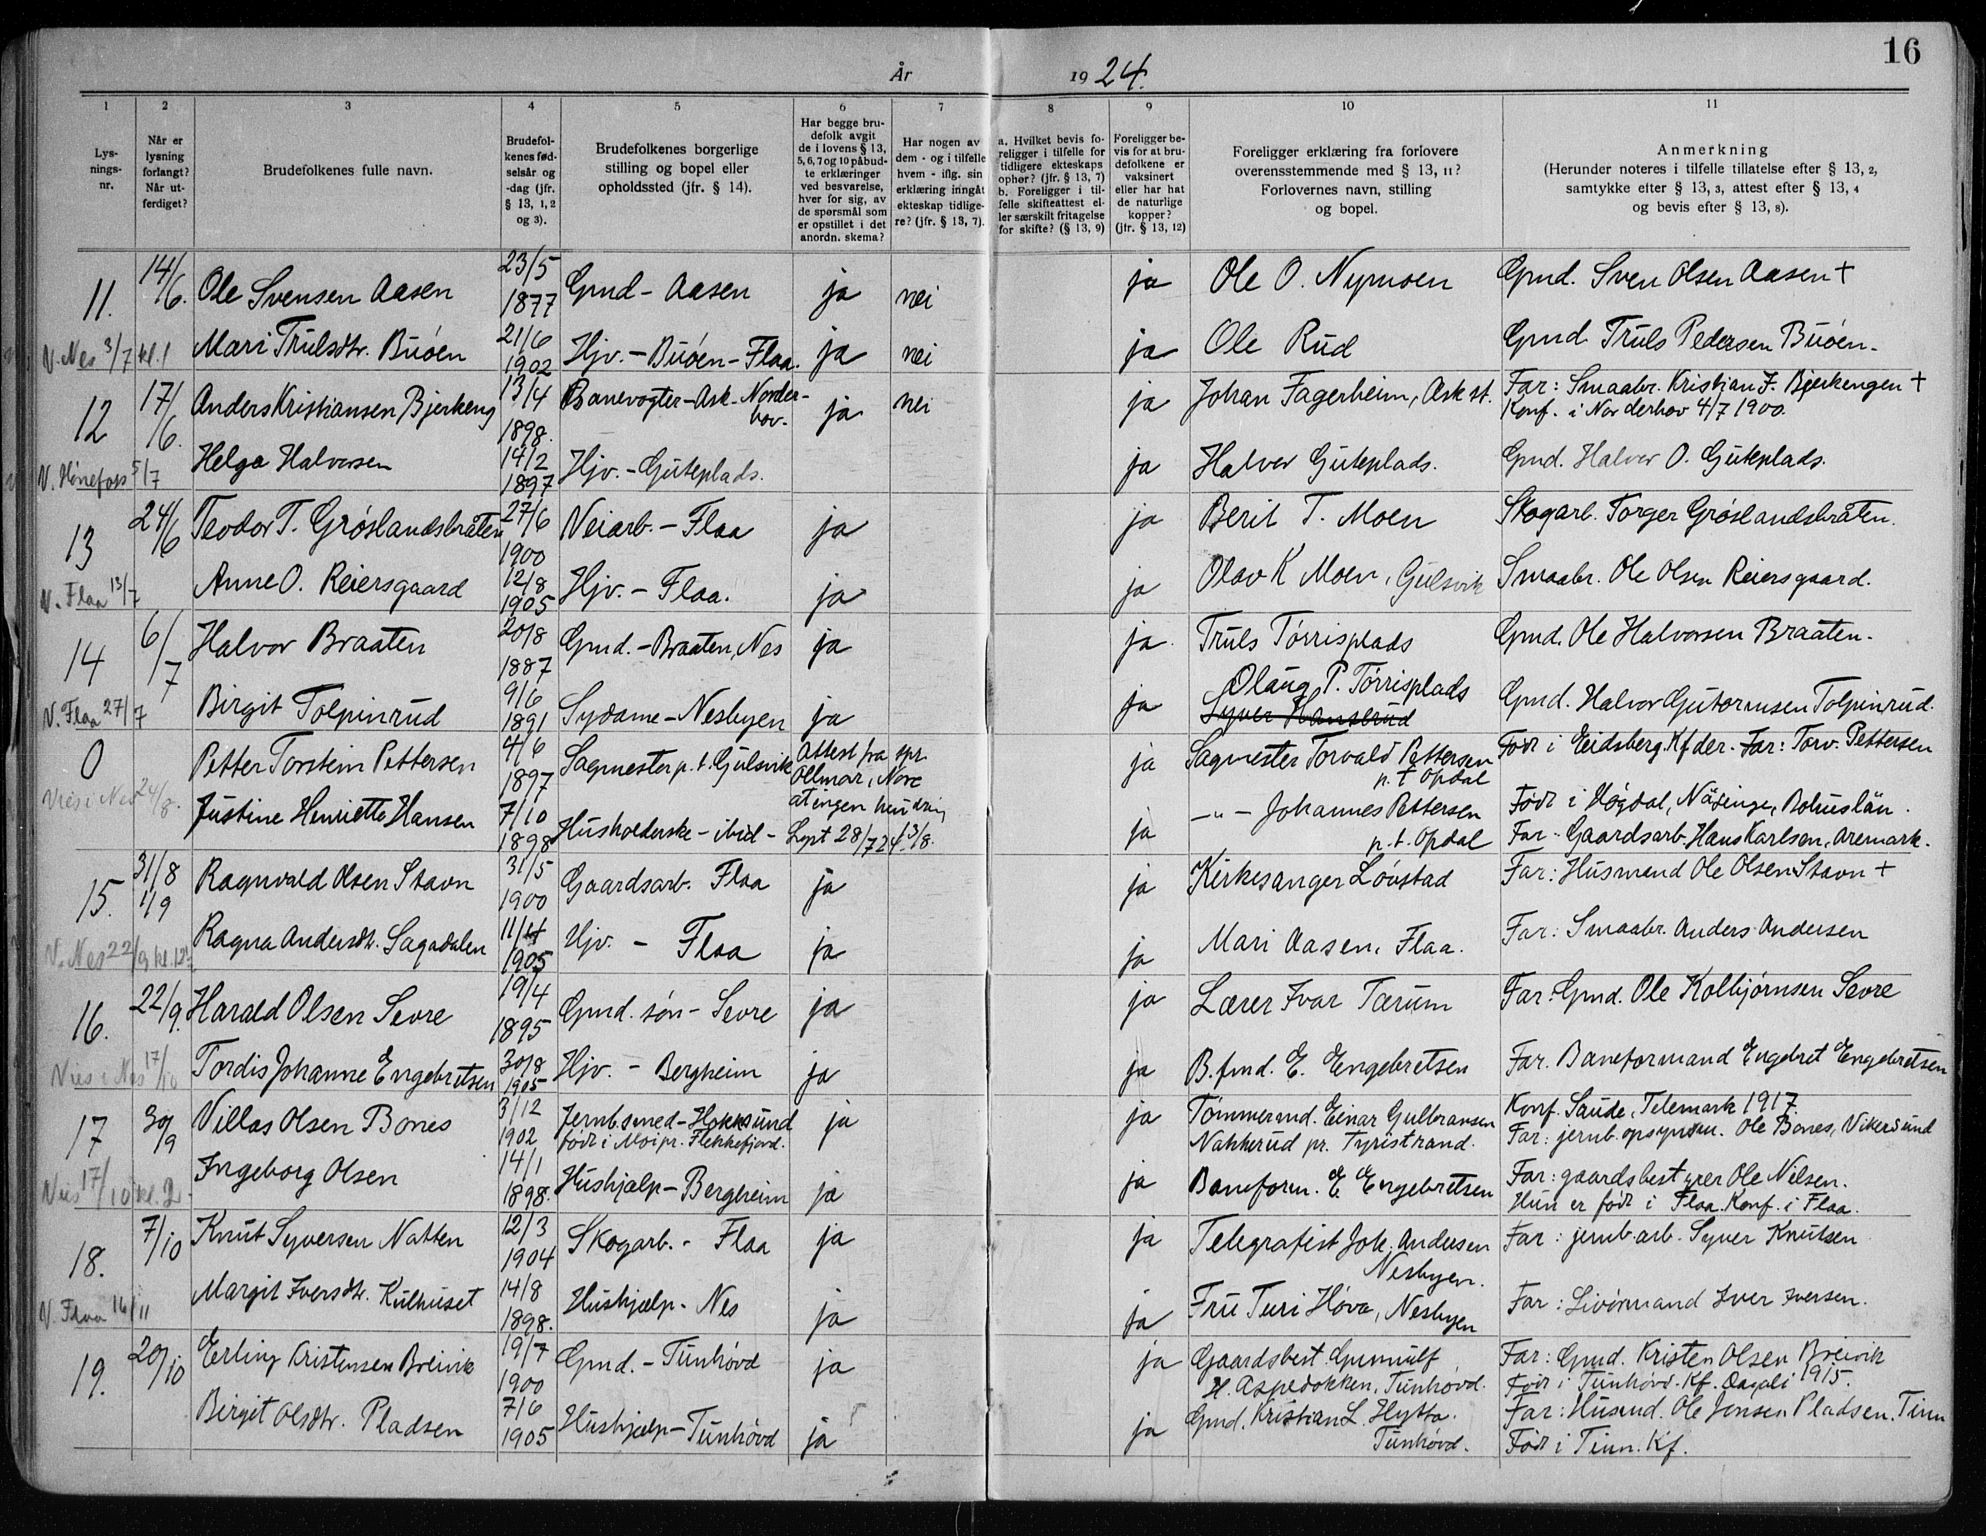 16
År 1924.
1 2 3 4 5 6 7 8 9 10 11
Lys-
nings-
nr.
Når er
lysning
forlangt?
Når ut-
ferdiget?
Brudefolkenes fulle navn.
Brudefol-
kenes fød-
selsår og
-dag (jfr.
§ 13, 1, 2
og 3).
Brudefolkenes borgerlige
stilling og bopel eller
opholdssted (jfr. § 14).
Har begge bru-
defolk avgit
de i lovens § 13,
5, 6, 7 og 10 påbud-
te erklæringer
ved besvarelse,
hver for sig, av
de spørsmål som
er opstillet i det
anordn. skema?
Har nogen av
dem - og i tilfelle
hvem - iflg. sin
erklæring inngåt
ekteskap tidlige-
re? (jfr. § 13, 7).
a. Hvilket bevis fo-
religger i tilfelle for
tidligere ekteskaps
ophør? (jfr. § 13, 7)
b. Foreligger i til-
felle skifteattest el-
ler særskilt fritagelse
for skifte? (§ 13, 9)
Foreligger be-
vis for at bru-
defolkene er
vaksinert
eller har hat
de naturlige
kopper?
(jfr. § 13, 12)
Foreligger erklæring fra forlovere
overensstemmende med § 13, 11?
Forlovernes navn, stilling
og bopel.
Anmerkning
(Herunder noteres i tilfelle tillatelse efter § 13, 2,
samtykke efter § 13, 3, attest efter § 13, 4
og bevis efter § 13, 8).
11. 14/6. Ole Svensen Aasen 23/5 1877 Gmd - Aasen ja nei ja Ole O. Nymoen Gmd. Sven Olsen Aasen +
V. Nes 3/7 kl. 1 Mari Trulsdtr. Buöen 21/6 1902 Hjv. - Buöen - Flaa. ja nei ja Ole Rud Gmd Truls Pedersen Buöen.
12 17/6. Anders Kristiansen Bjerkeng 13/4 1898. Banevogter - Ask - Norder-
hov. ja nei ja Johan Fagerheim, Ask st. Far: Smaabr. Kristian F. Bjerkengen +
Konf. i Norderhov 4/7 1900.
V. Hønefoss 5/7 Helga Halvorsen 14/2 1897 Hjv. - Guteplads. ja Halvor Guteplads. Gmd. Halvor O. Guteplads.
13 24/6 Teodor T. Grøslandsbråten 27/6 1900 Veiarb. - Flaa ja ja Berit T. Moen Skogarb. Torger Grøslandsbråten.
V. Flaa 13/7 Anne O. Reiersgaard 12/8 1905 Hjv. - Flaa. ja ja Olav K Moen, Gulsvik Smaabr. Ole Olsen Reiersgaard.
14 6/7 Halvor Braaten 20/8 1887 Gmd. - Braaten, Nes ja ja Truls Törrisplads Gmd. Ole Halvorsen Braaten.
V. Flaa 27/7 Birgit Tolpinrud 9/6 1891 Sydame - Nesbyen ja ja Olaug P. Törrisplads
Syver Hansbrud Gmd. Halvor Gutormsen Tolpinrud.
0 Petter Torstein Pettersen 4/6 1897 Sagmester p. t. Gulsvik Attest fra spr.
Ollmar, Nore
at ingen hindring ja Sagmester Torvald Pettersen
p. t Opdal Født i Eidsberg. Kf der. Far: Torv. Pettersen
Vies i Nes 24/8. Justine Henriette Hansen 7/10 1898 Husholderske - ibid - Lyst 28/7 24. 13/8. ja - " - Johannes Pettersen
p. t. Opdal Født i Högdal, Näsinge, Bohuslän.
Far - Gaardsarb. Hans Karlsen, Aremark.
15. 31/8 1/9 Ragnvald Olsen Stavn 31/5 1900 Gaardsarb. Flaa ja ja Kirkesanger Lövstad Far: Husmand Ole Olsen Stavn +
V. Nes 22/9 kl. 12 Ragna Andersdtr. Sagadalen 11/4 1905 Hjv. - Flaa ja ja Mari Aasen, Flaa. Far: Smaabr. Anders Andersen
16. 22/9. Harald Olsen Sevre 19/4 1895 Gmd. sön - Sevre ja ja Lærer Ivar Tærum Far: Gmd. Ole Kolbjørnsen Sevre
Vies i Nes 17/10 Tordis Johanne Engebretsen 30/8 1905 Hjv. - Bergheim ja ja B.fmd. E. Engebretsen Far. Baneformand Engebret Engebretsen
17 30/9 Villas Olsen Bones 3/12 1902 Jernb.smed - Hokksund
født i Moi pr. Flekkefjord. ja ja Tömmermd. Einar Gulbransen
Nakkerud pr. Tyristrand. Konf. Saude, Telemark 1917.
Far: jernb. opsynsm. Ole Bones, Vikersund
Vies 17/10 kl. 2. Ingeborg Olsen 14/1 1898. Hushjælp - Bergheim ja ja Baneform. E Engebretsen Far: gaardsbestyrer Ole Nilsen.
Hun er født i Flaa. Konf. i Flaa.
18. 7/10 Knut Syversen Natten 12/3 1904 Skogarb. - Flaa ja ja Telegrafist Joh. Andersen
Nesbyen. Far: jernb.arb. Syver Knutsen
V. Flaa 16/11 Margit Iversdtr. Kulhuset 14/8 1898. Hushjælp - Nes ja ja Fru Turi Höva, Nesbyen Far: Livörmand Iver Iversen.
19. 20/10 Erling Kristensen Breivik 19/7 1900 Gmd. - Tunhövd ja ja Gaardsbest. Gunnulf
H. Aspedokken, Tunhovd. Far: Gmd. Kristen Olsen Breivik
Født i Tunhövd. Kf. Dagali 1915.
Birgit Olsdtr. Pladsen 7/6 1905 Hushjælp - Tunhövd ja ja Gmd. Kristian L. Hytta.
Tunhövd. Far: Husmd. Ole Jensen Pladsen, Tinn
Født i Tinn. Kf.